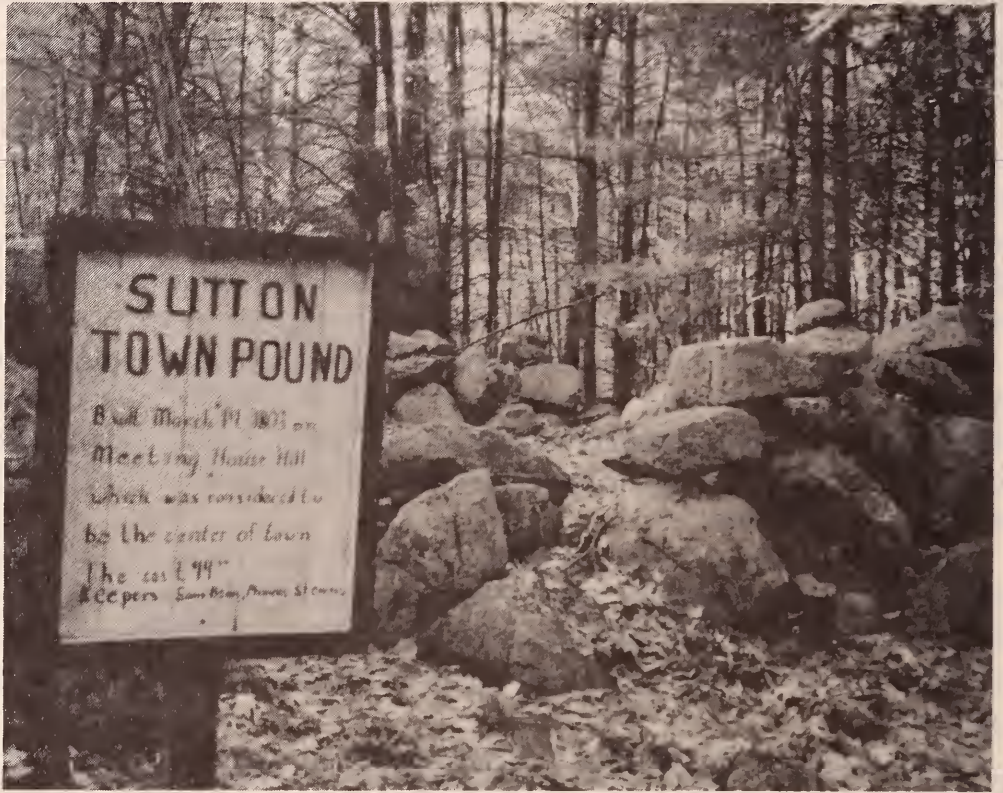 SUTTON
TOWN POUND
Built March 19, on
Meeting House Hill
which was considered to
be the center of town
The cost 44
Keepers Sam Bean, Stevens